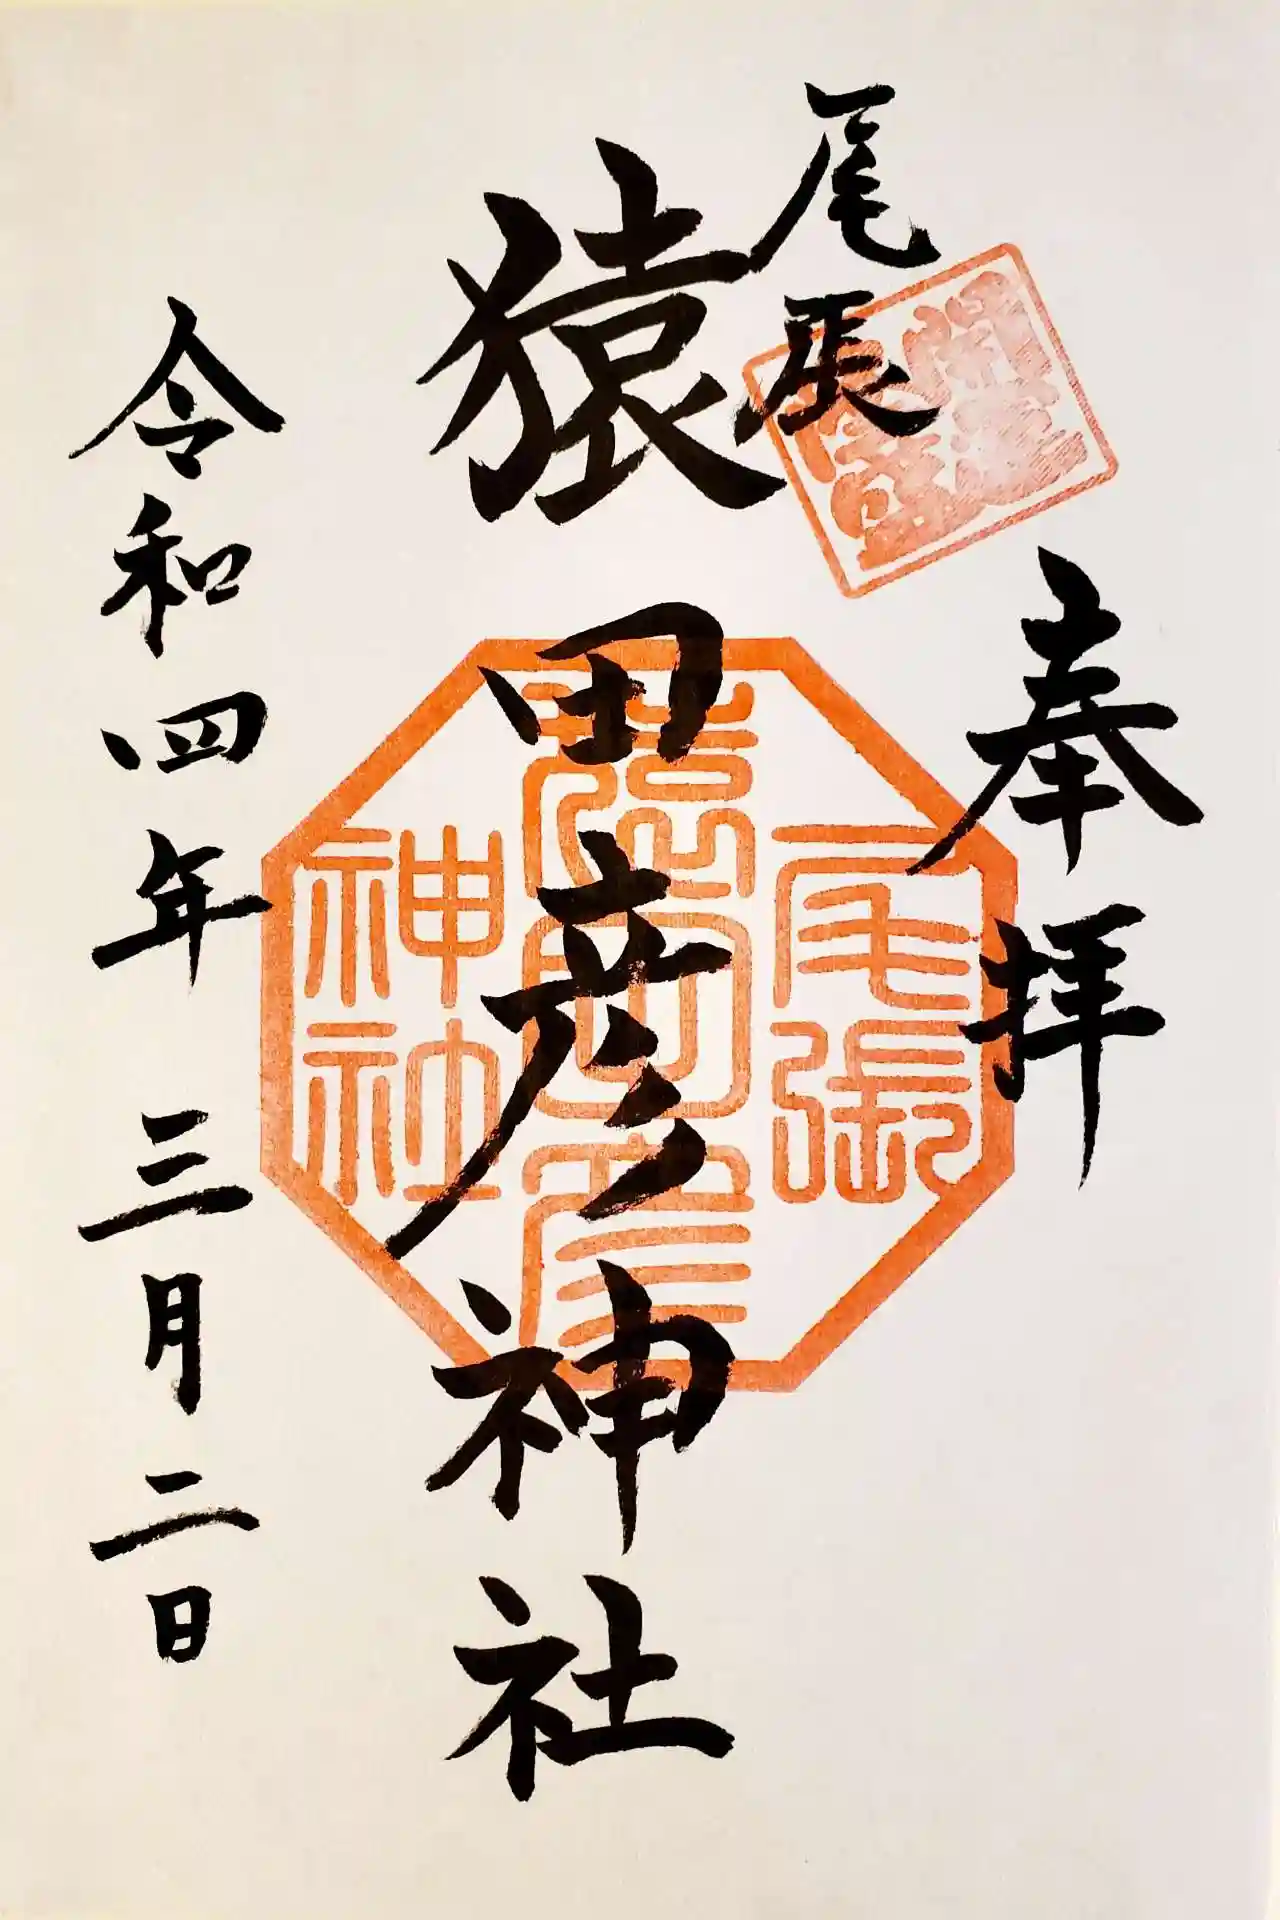 奉拝
尾張
猿田彦神社
令和四年 三月二日
尾張
猿田彦
神社
開運